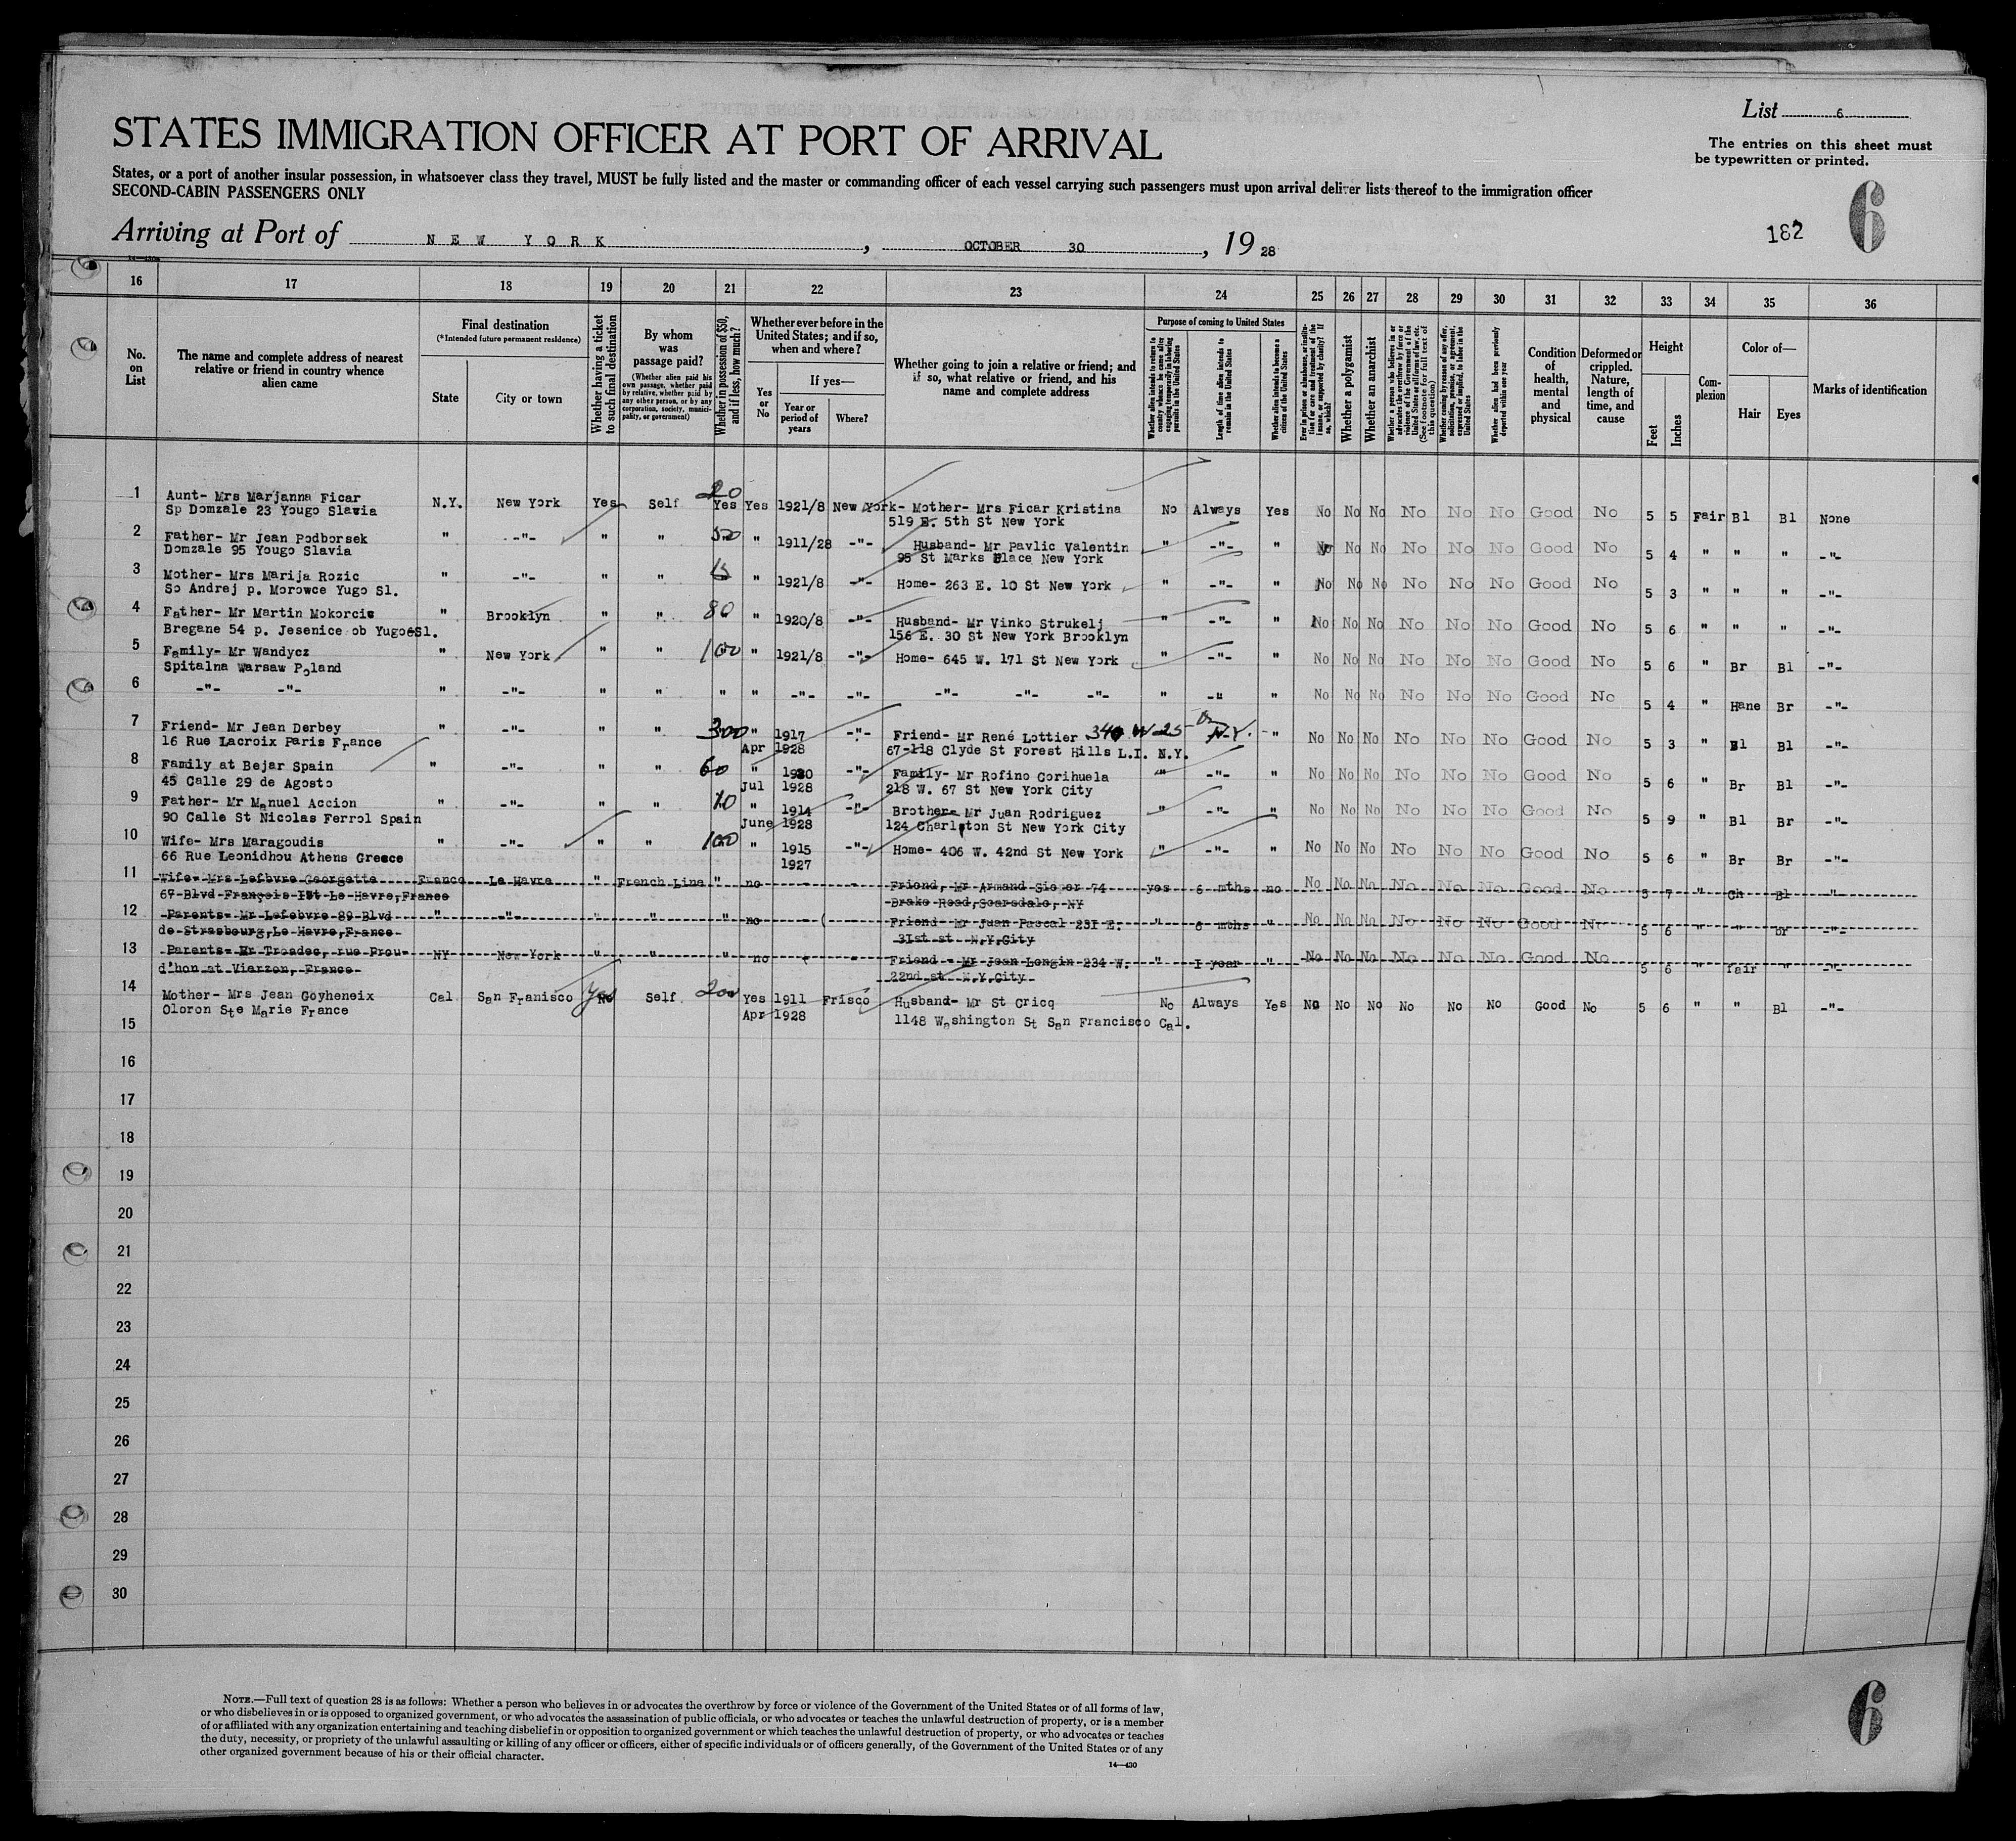 List 6
STATES IMMIGRATION OFFICER AT PORT OF ARRIVAL
The entries on this sheet must
be typewritten or printed.
States, or a port of another insular possession, in whatsoever class they travel, MUST be fully listed and the master or commanding officer of each vessel carrying such passengers must upon arrival deliver lists thereof to the immigration officer
SECOND-CABIN PASSENGERS ONLY
6
182
Arriving at Port of NEW YORK, OCTOBER 30, 19 28
16 17 18 19 20 21 22 23 24 25 26 27 28 29 30 31 32 33 34 35 36
No. on List
The name and complete address of nearest relative or friend in country whence alien came
Final destination
(*Intended future permanent residence)
State
City or town
Whether having a ticket to such final destination
By whom was passage paid?
(Whether alien paid his own passage, whether paid by relative, whether paid by any other person, or by any corporation, society, municipality, or government)
Whether in possession of $50, and if less, how much?
Whether ever before in the United States; and if so, when and where?
Yes or No
If yes—
Year or period of years
Where?
Whether going to join a relative or friend; and if so, what relative or friend, and his name and complete address
Purpose of coming to United States
Length of time alien intends to remain in the United States
Whether alien intends to become a citizen of the United States
Whether a polygamist
Whether an anarchist
Whether alien had been previously deported within one year
Condition of health, mental and physical
Deformed or crippled. Nature, length of time, and cause
Height
Feet
Inches
Com-plexion
Color of—
Hair
Eyes
Marks of identification
1 Aunt- Mrs Marjanna Ficar N.Y. New York Yes Self 20 Yes Yes 1921/8 New York- Mother- Mrs Ficar Kristina No Always Yes No No No No No No Good No 5 5 Fair Bl Bl None
Sp Domzale 23 Yougo Slavia 519 E. 5th St New York
2 Father- Mr Jean Podborsek " -"- " " 50 " 1911/28 -"- Husband- Mr Pavlic Valentin " -"- " No No No No No No Good No 5 4 " " " -"-
Domzale 95 Yougo Slavia 95 St Marks Place New York
3 Mother- Mrs Marija Rozic " -"- " " 15 " 1921/8 -"- Home- 263 E. 10 St New York " -"- " No No No No No No Good No 5 3 " " " -"-
So Andrej p. Morowce Yugo Sl.
4 Father- Mr Martin Mokorcis " Brooklyn " " 80 " 1920/8 -"- Husband- Mr Vinko Strukelj " -"- " No No No No No No Good No 5 6 " " " -"-
Bregane 54 p. Jesenice ob YugoSl. 156 E. 30 St New York Brooklyn
5 Family- Mr Wandycz " New York " " 100 " 1921/8 -"- Home- 645 W. 171 St New York " -"- " No No No No No No Good No 5 6 " Br Bl -"-
Spitalna Warsaw Poland
6 -"- -"- " -"- " " " " -"- -"- -"- -"- -"- " -"- " No No No No No No Good No 5 4 " Hane Br -"-
7 Friend- Mr Jean Derbey " -"- " " 300 " 1917 -"- Friend- Mr René Lottier 340 W 25 N.Y. " No No No No No No Good No 5 3 " Bl Bl -"-
16 Rue Lacroix Paris France Apr 1928 67-118 Clyde St Forest Hills L.I. N.Y.
8 Family at Bejar Spain " -"- " " 60 " 1920 -"- Family- Mr Rofino Corihuela " -"- " No No No No No No Good No 5 6 " Br Bl -"-
45 Calle 29 de Agosto Jul 1928 218 W. 67 St New York City
9 Father- Mr Manuel Accion " -"- " " 70 " 1914 -"- Brother- Mr Juan Rodriguez " -"- " No No No No No No Good No 5 9 " Bl Br -"-
90 Calle St Nicolas Ferrol Spain June 1928 124 Charlton St New York City
10 Wife- Mrs Maragoudis " -"- " " 100 " 1915 -"- Home- 406 W. 42nd St New York " -"- " No No No No No No Good No 5 6 " Br Br -"-
66 Rue Leonidhou Athens Greece 1927
11 Wife- Mrs Lefbvre Georgette France Le Havre " French Line " no - - Friend, Mr Armand 74 yes 6 mths no No No No No No No Good No 5 7 " Ch Bl -"-
67 Blvd François Ist Le Havre, France Drake Road, Scarsdale, NY
12 Parents- Mr Lefebvre 89 Blvd " -"- " " " no - - Friend- Mr Juan Pascal 231 E. " 6 mths " No No No No No No Good No 5 6 " " br -"-
de Strasbourg, Le Havre, France 31st st N.Y.City
13 Parents- Mr Trosdec, rue Prou- NY New York " " " no - - Friend- Mr Jean Longin 234 W. " 1 year " No No No No No No Good No 5 6 " fair " -"-
d'hon at Vierzon, France 22nd st N.Y.City
14 Mother- Mrs Jean Goyheneix Cal San Franisco Yes Self 200 Yes 1911 Frisco Husband- Mr St Cricq No Always Yes No No No No No No Good No 5 6 " " Bl -"-
Oloron Ste Marie France Apr 1928 1148 Washington St San Francisco Cal.
15
16
17
18
19
20
21
22
23
24
25
26
27
28
29
30
NOTE.—Full text of question 28 is as follows: Whether a person who believes in or advocates the overthrow by force or violence of the Government of the United States or of all forms of law,
or who disbelieves in or is opposed to organized government, or who advocates the assassination of public officials, or who advocates or teaches the unlawful destruction of property, or is a member
of or affiliated with any organization entertaining and teaching disbelief in or opposition to organized government or which teaches the unlawful destruction of property, or who advocates or teaches
the duty, necessity, or propriety of the unlawful assaulting or killing of any officer or officers, either of specific individuals or of officers generally, of the Government of the United States or of any
other organized government because of his or their official character.
14—430
6